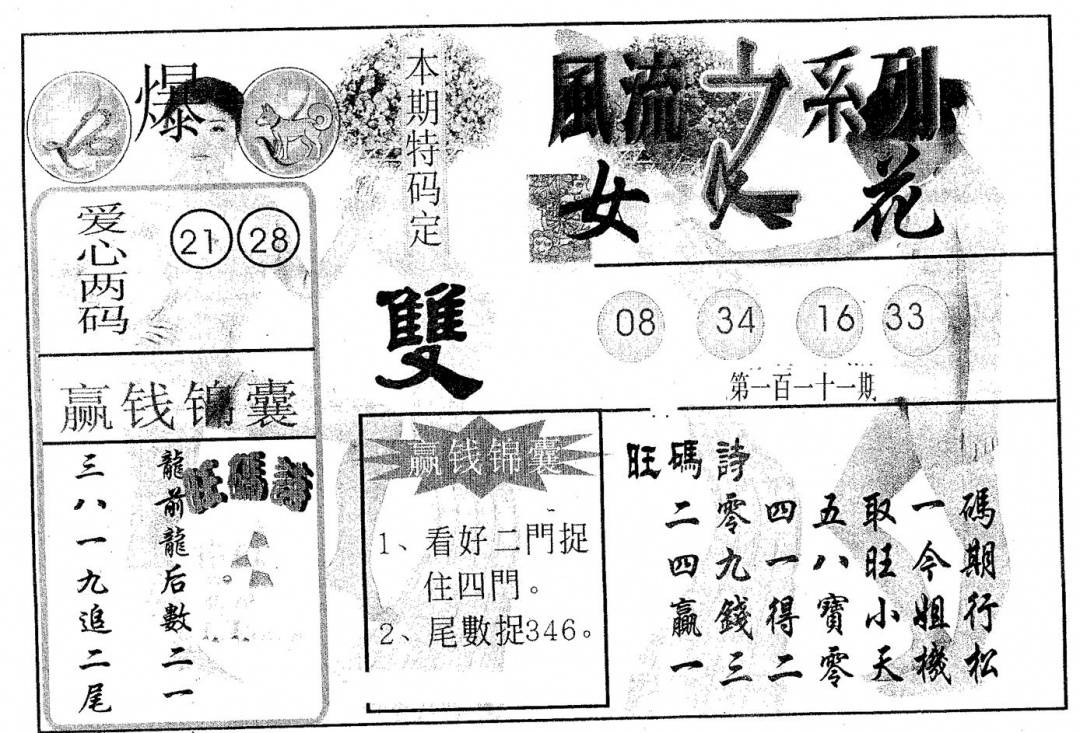 爆
本期特码定
雙
風流之系列
女人花
爱心两码
21 28
08 34 16 33
第一百一十一期
赢钱锦囊
旺碼詩
龍前龍后數二一
三八一九追二尾
赢钱锦囊
1、看好二門捉
住四門。
2、尾數捉346。
旺碼詩
二零四五取一碼
四九一八旺今期
贏錢得寶小姐行
一三二零天機松